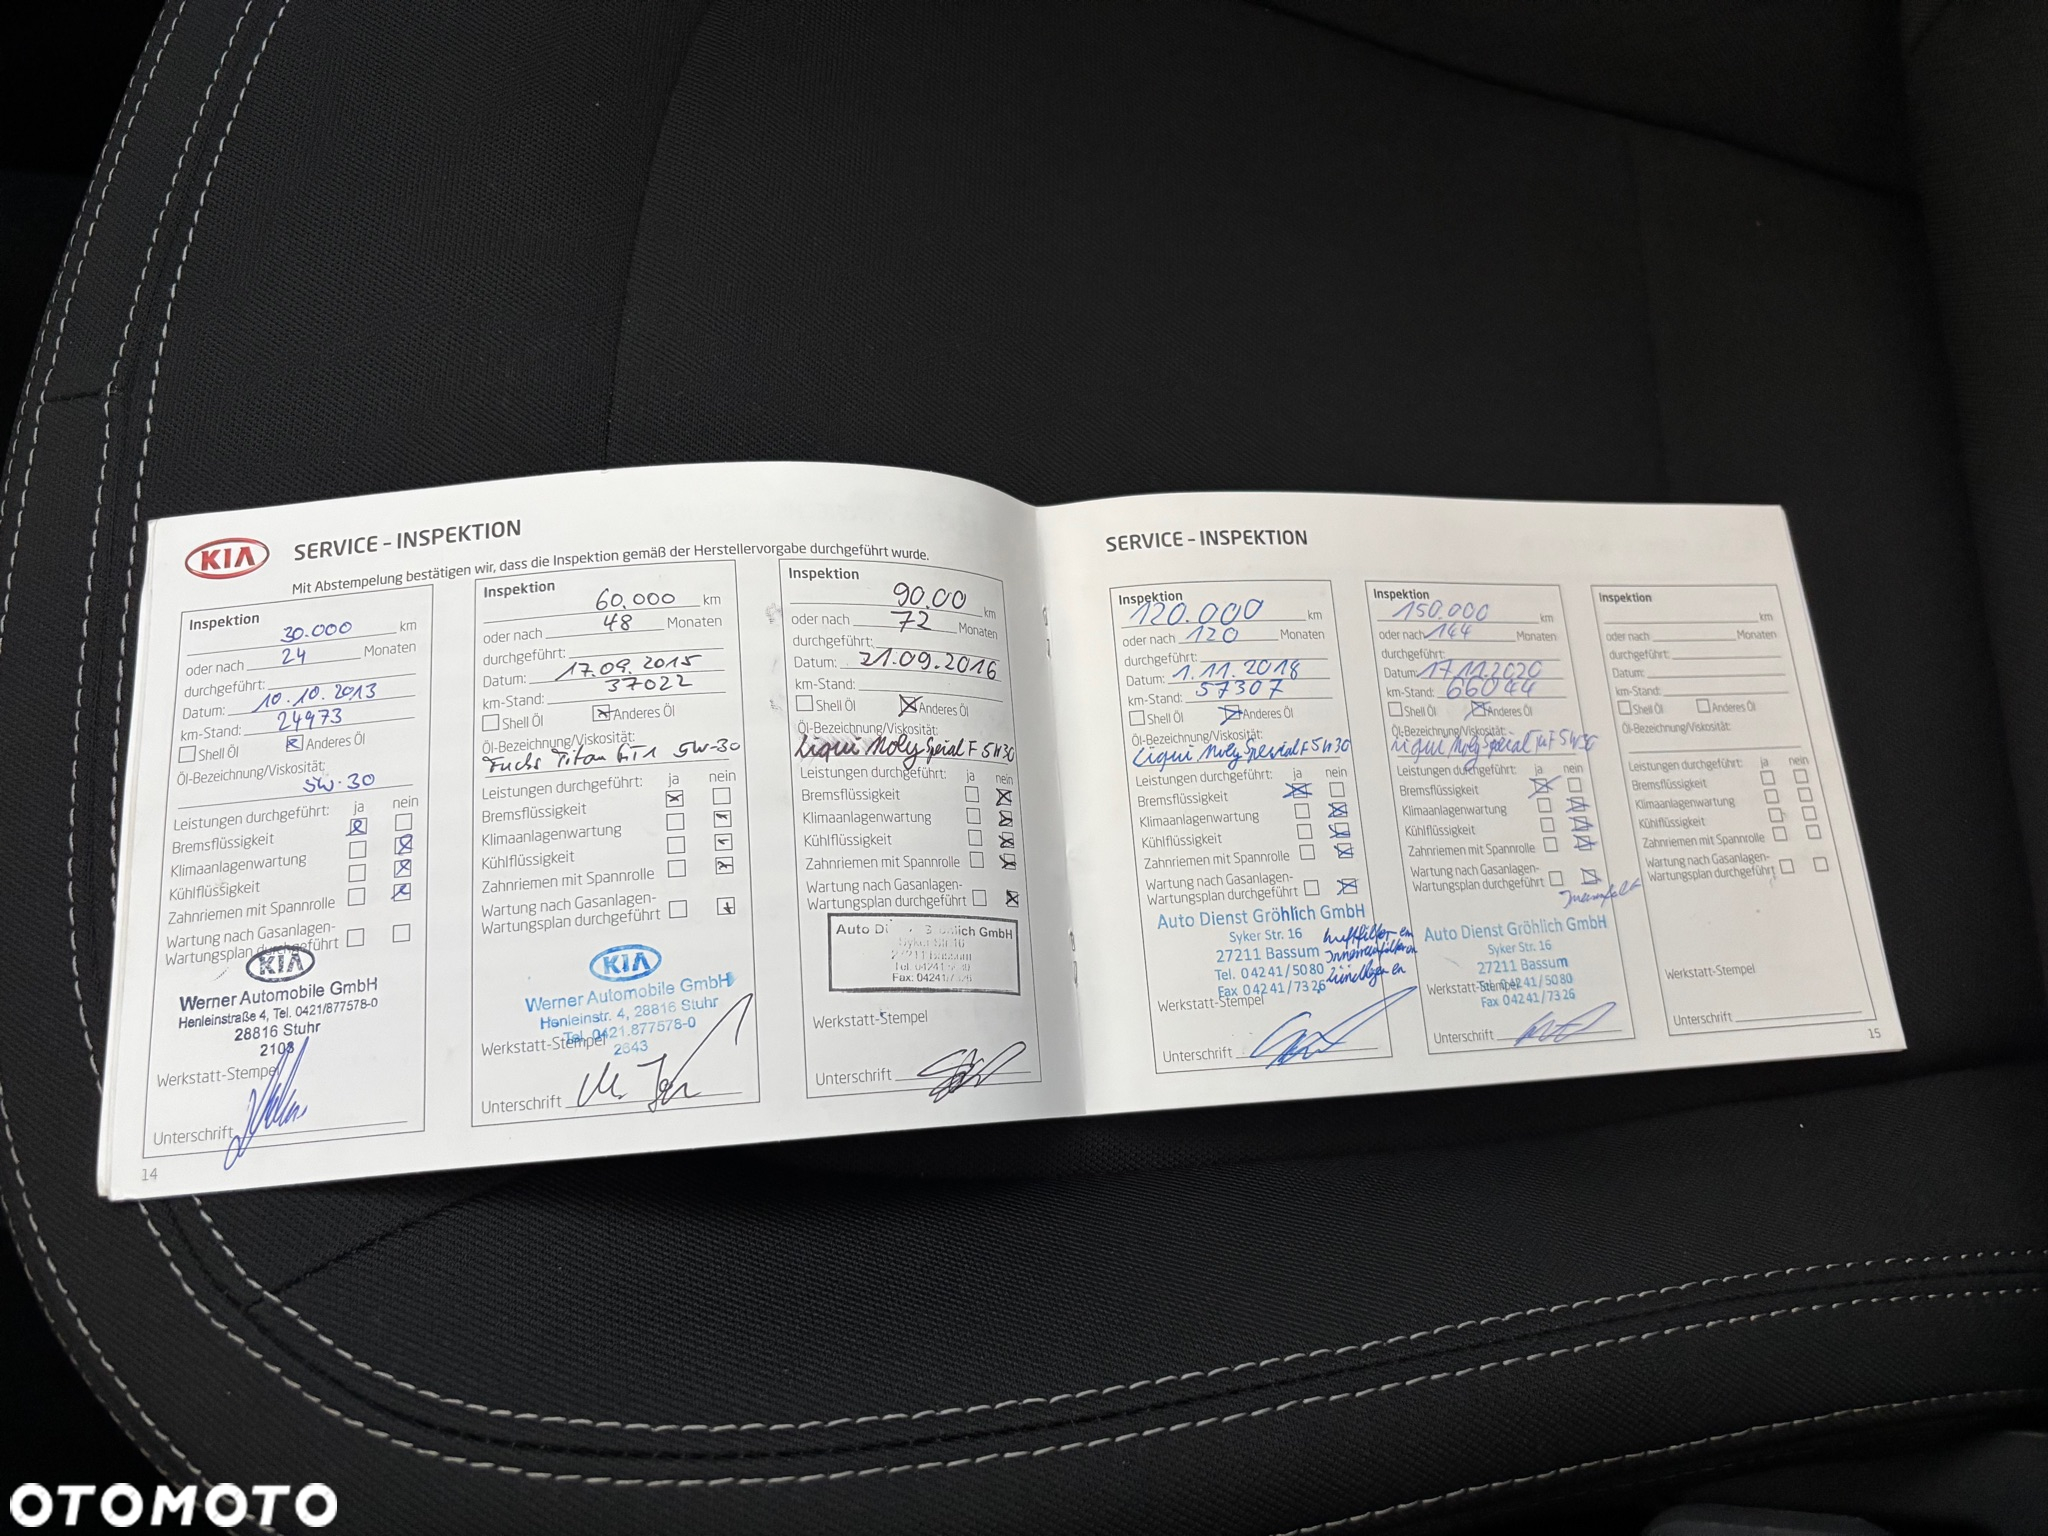 KIA
SERVICE – INSPEKTION
Mit Abstempelung bestätigen wir, dass die Inspektion gemäß der Herstellervorgabe durchgeführt wurde.
Inspektion
30.000 km
oder nach 24 Monaten
durchgeführt:
Datum: 10.10.2013
km-Stand: 24973
Shell Öl Anderes Öl
Öl-Bezeichnung/Viskosität:
5W-30
Leistungen durchgeführt: ja nein
Bremsflüssigkeit
Klimaanlagenwartung
Kühlflüssigkeit
Zahnriemen mit Spannrolle
Wartung nach Gasanlagen-
Wartungsplan durchgeführt
KIA
Werner Automobile GmbH
Henleinstraße 4, Tel. 0421/877578-0
28816 Stuhr
2108
Werkstatt-Stempel
Unterschrift
14
Inspektion
60.000 km
oder nach 48 Monaten
durchgeführt:
Datum: 17.09.2015
km-Stand: 37022
Shell Öl Anderes Öl
Öl-Bezeichnung/Viskosität:
Fuchs Titan GT1 5W-30
Leistungen durchgeführt: ja nein
Bremsflüssigkeit
Klimaanlagenwartung
Kühlflüssigkeit
Zahnriemen mit Spannrolle
Wartung nach Gasanlagen-
Wartungsplan durchgeführt
KIA
Werner Automobile GmbH
Henleinstr. 4, 28816 Stuhr
Tel. 0421.877578-0
Werkstatt-Stempel 2643
Unterschrift
Inspektion
90.00 km
oder nach 72 Monaten
durchgeführt:
Datum: 21.09.2016
km-Stand:
Shell Öl Anderes Öl
Öl-Bezeichnung/Viskosität:
Liqui Moly Spezial F 5W30
Leistungen durchgeführt: ja nein
Bremsflüssigkeit
Klimaanlagenwartung
Kühlflüssigkeit
Zahnriemen mit Spannrolle
Wartung nach Gasanlagen-
Wartungsplan durchgeführt
Auto GmbH
Syker Str. 16
Bassum
Werkstatt-Stempel
Unterschrift
SERVICE – INSPEKTION
Inspektion
120.000 km
oder nach 120 Monaten
durchgeführt:
Datum: 1.11.2018
km-Stand: 57307
Shell Öl Anderes Öl
Öl-Bezeichnung/Viskosität:
Liqui Moly Spezial F 5W30
Leistungen durchgeführt: ja nein
Bremsflüssigkeit
Klimaanlagenwartung
Kühlflüssigkeit
Zahnriemen mit Spannrolle
Wartung nach Gasanlagen-
Wartungsplan durchgeführt
Auto Dienst Gröhlich GmbH
Syker Str. 16
27211 Bassum
Tel. 04241/5080
Fax 04241/7326
Luftfilter en
Werkstatt-Stempel
Unterschrift
Inspektion
150.000 km
oder nach 144 Monaten
durchgeführt:
Datum: 17.11.2020
km-Stand: 66044
Shell Öl Anderes Öl
Öl-Bezeichnung/Viskosität:
Liqui Moly Spezial F 5W30
Leistungen durchgeführt: ja nein
Bremsflüssigkeit
Klimaanlagenwartung
Kühlflüssigkeit
Zahnriemen mit Spannrolle
Wartung nach Gasanlagen-
Wartungsplan durchgeführt
Auto Dienst Gröhlich GmbH
Syker Str. 16
27211 Bassum
Werkstatt-Stempel 04241/5080
Fax 04241/7326
Unterschrift
Inspektion
km
oder nach Monaten
durchgeführt:
Datum:
km-Stand:
Shell Öl Anderes Öl
Öl-Bezeichnung/Viskosität:
Leistungen durchgeführt: ja nein
Bremsflüssigkeit
Klimaanlagenwartung
Kühlflüssigkeit
Zahnriemen mit Spannrolle
Wartung nach Gasanlagen-
Wartungsplan durchgeführt
Werkstatt-Stempel
Unterschrift
15
OTOMOTO